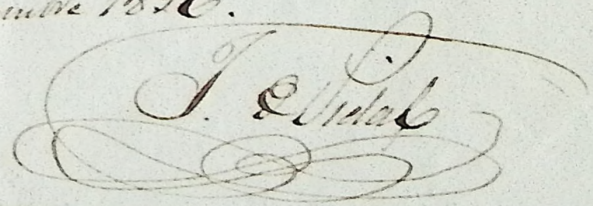 1826.
J. E. Vidal